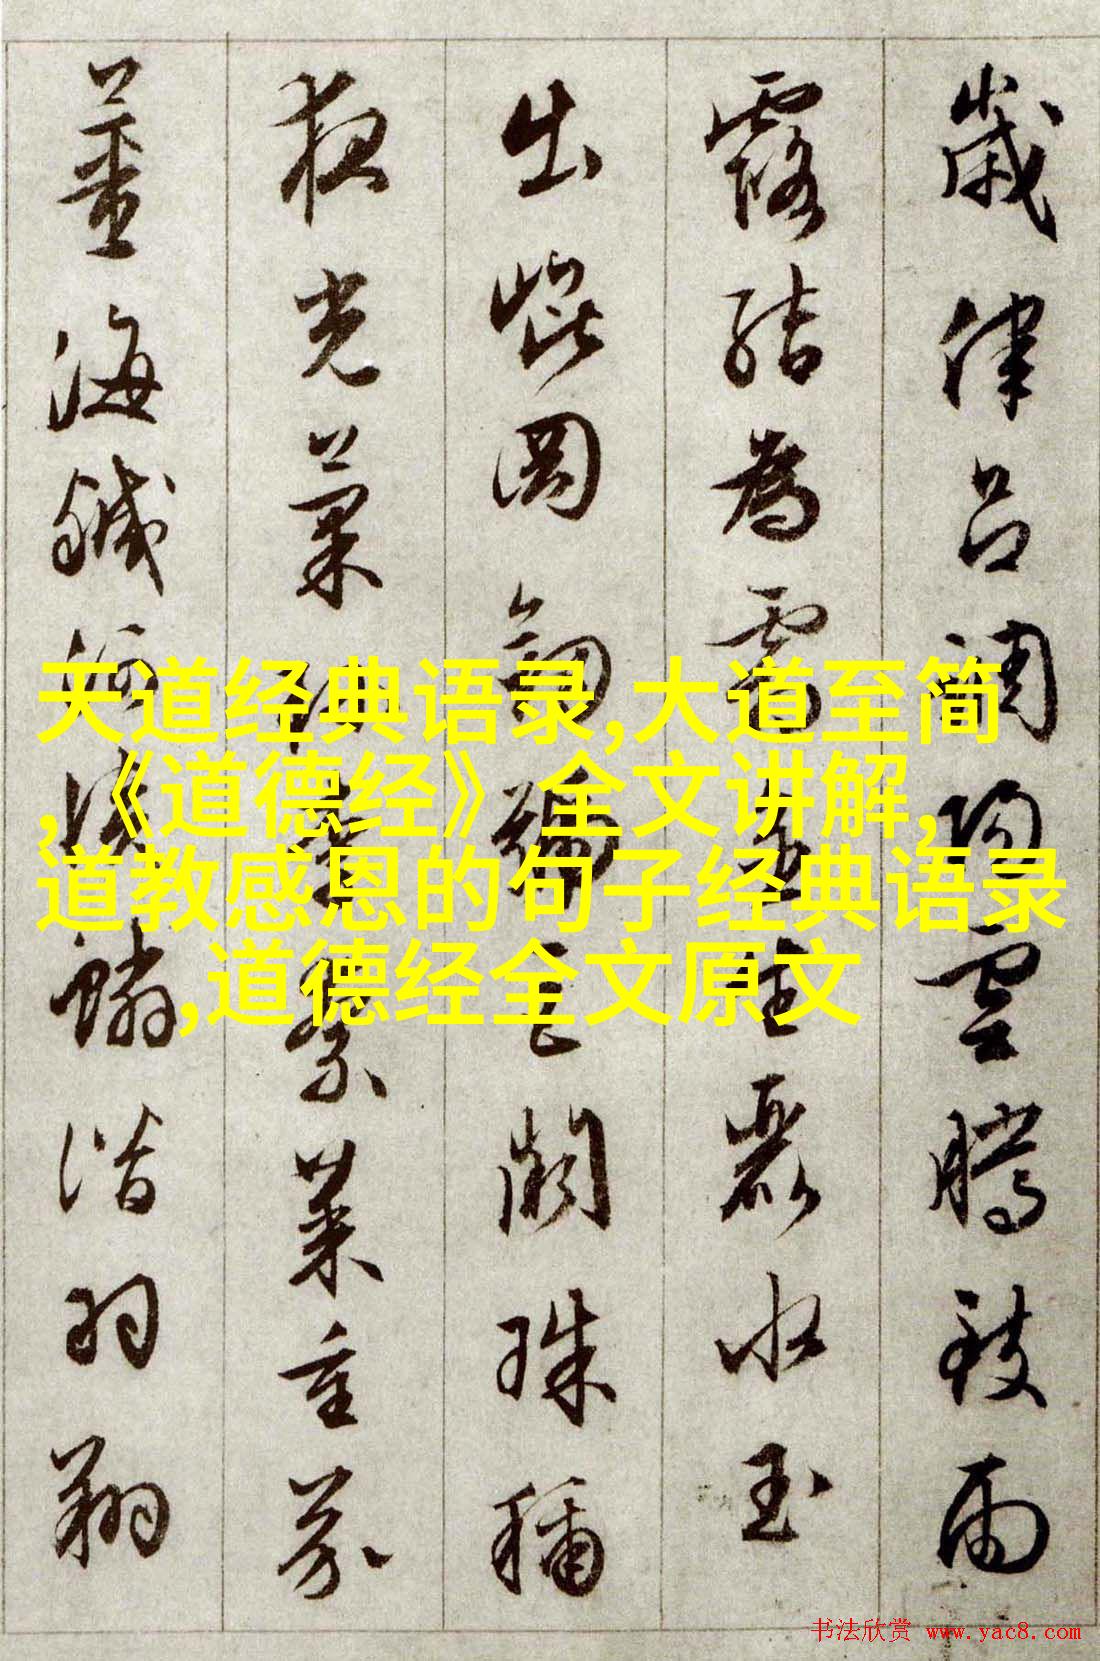 歲律呂調陽雲騰致雨
露結為霜金生麗水玉
出崐岡劍號巨闕珠稱
夜光菓珍李柰菜重芥
薑海鹹河淡鱗潛羽翔
天道经典语录,大道至简
,《道德经》全文讲解,
道教感恩的句子经典语录
,道德经全文原文
书法欣赏 www.yac8.com